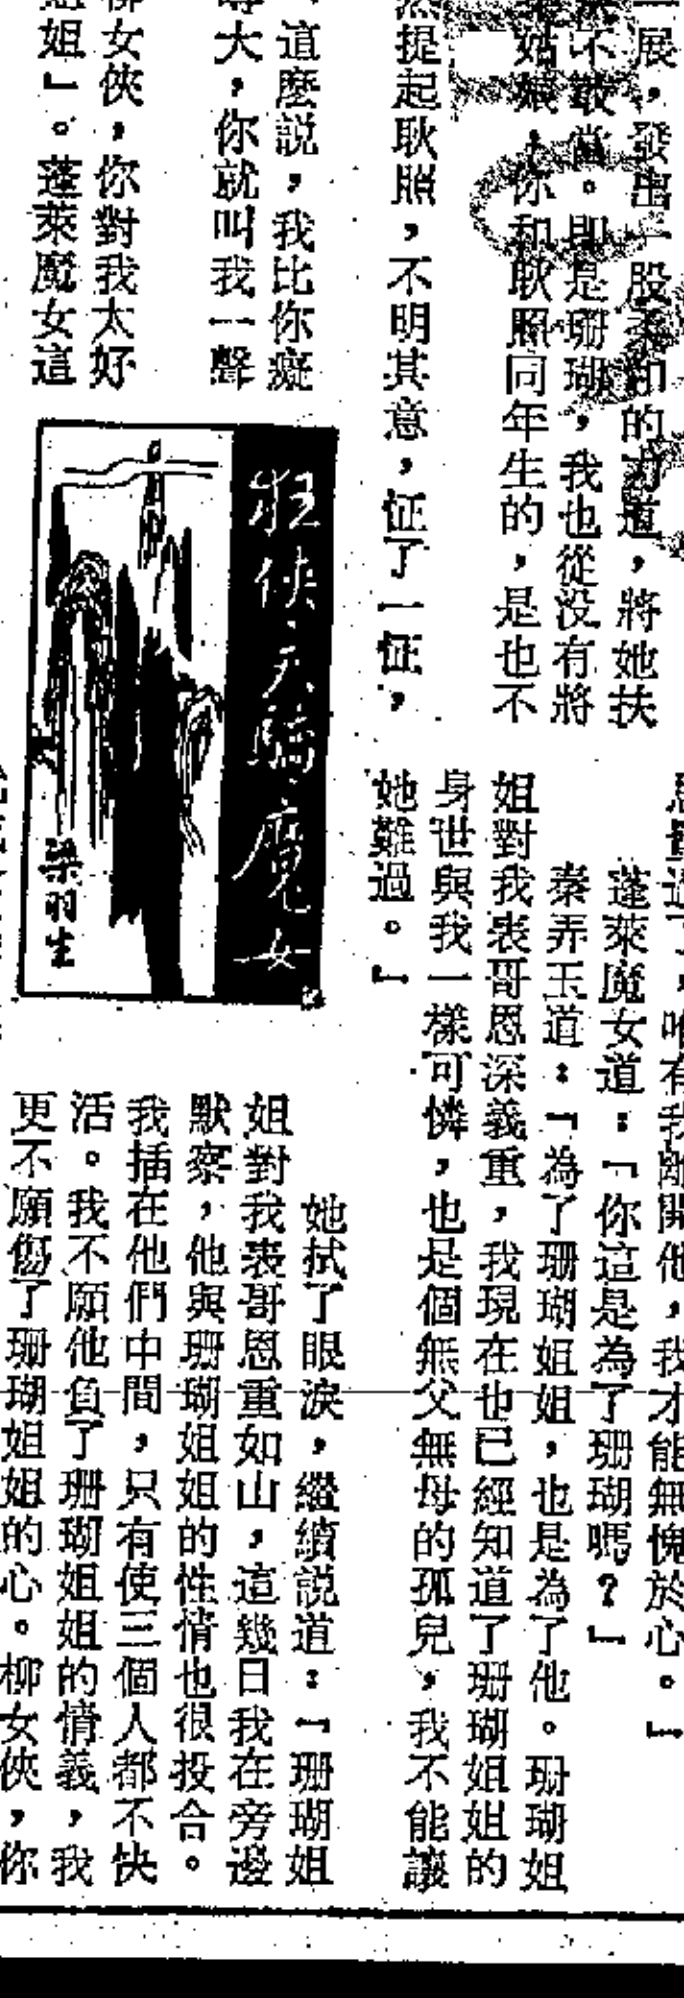 一展，發出一股柔和的力道，將她扶
不敢當。即是珊瑚，我也從没有將
姑娘，你和耿照同年生的，是也不
然提起耿照，不明其意，怔了一怔，
，這麼説，我比你癡
大，你就叫我一聲
柳女俠，你對我太好
姐」。蓬萊魔女這
狂俠·天驕·魔女
梁羽生
過了，唯有我離開他，我才能無愧於心。」
蓬萊魔女道：「你這是為了珊瑚嗎？」
秦弄玉道：「為了珊瑚姐姐，也是為了他。珊瑚姐
姐對我表哥恩深義重，我現在也已經知道了珊瑚姐姐的
身世與我一樣可憐，也是個無父無母的孤兒，我不能讓
她難過。」
她拭了眼淚，繼續説道：「珊瑚姐
姐對我表哥恩重如山，這幾日我在旁邊
默察，他與珊瑚姐姐的性情也很投合。
我插在他們中間，只有使三個人都不快
活。我不願他負了珊瑚姐姐的情義，我
更不願傷了珊瑚姐姐的心。柳女俠，你